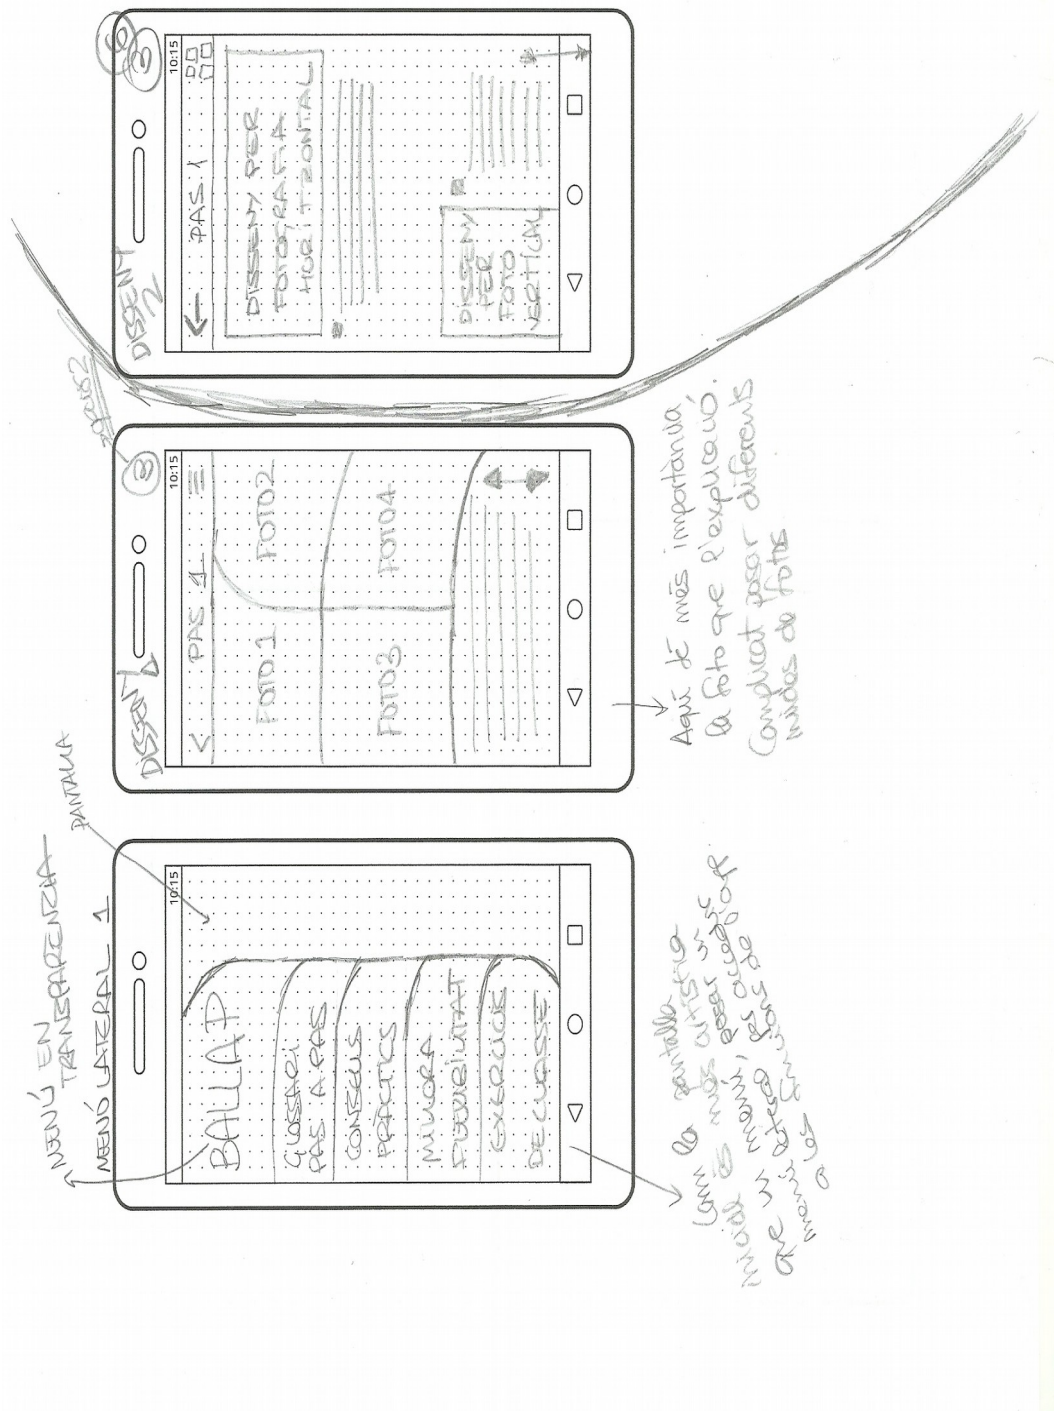 MENÚ EN
TRANSPARENZIA
MENÚ LATERAL 1
PANTALLA
10:15
BALLAP
GLOSSARI
PAS A PAS
CONSELLS
PRÀCTICS
MILLORA
FLEXIBILITAT
EXERCICIS
DE CLASSE
Com la pantalla
inicial és més artística
que un menú, posar un
menú lateral per accedir
a les funcions de
DISSENY 1
3
10:15
< PAS 1
FOTO 1
FOTO2
FOTO3
FOTO4
Aquí té més importància
la foto que l'explicació.
Complicat posar diferents
mides de fotos
DISSENY
2
6
3
10:15
PAS 1
DISSENY PER
FOTOGRAFIA
HORITZONTAL
DISSENY
PER
FOTO
VERTICAL